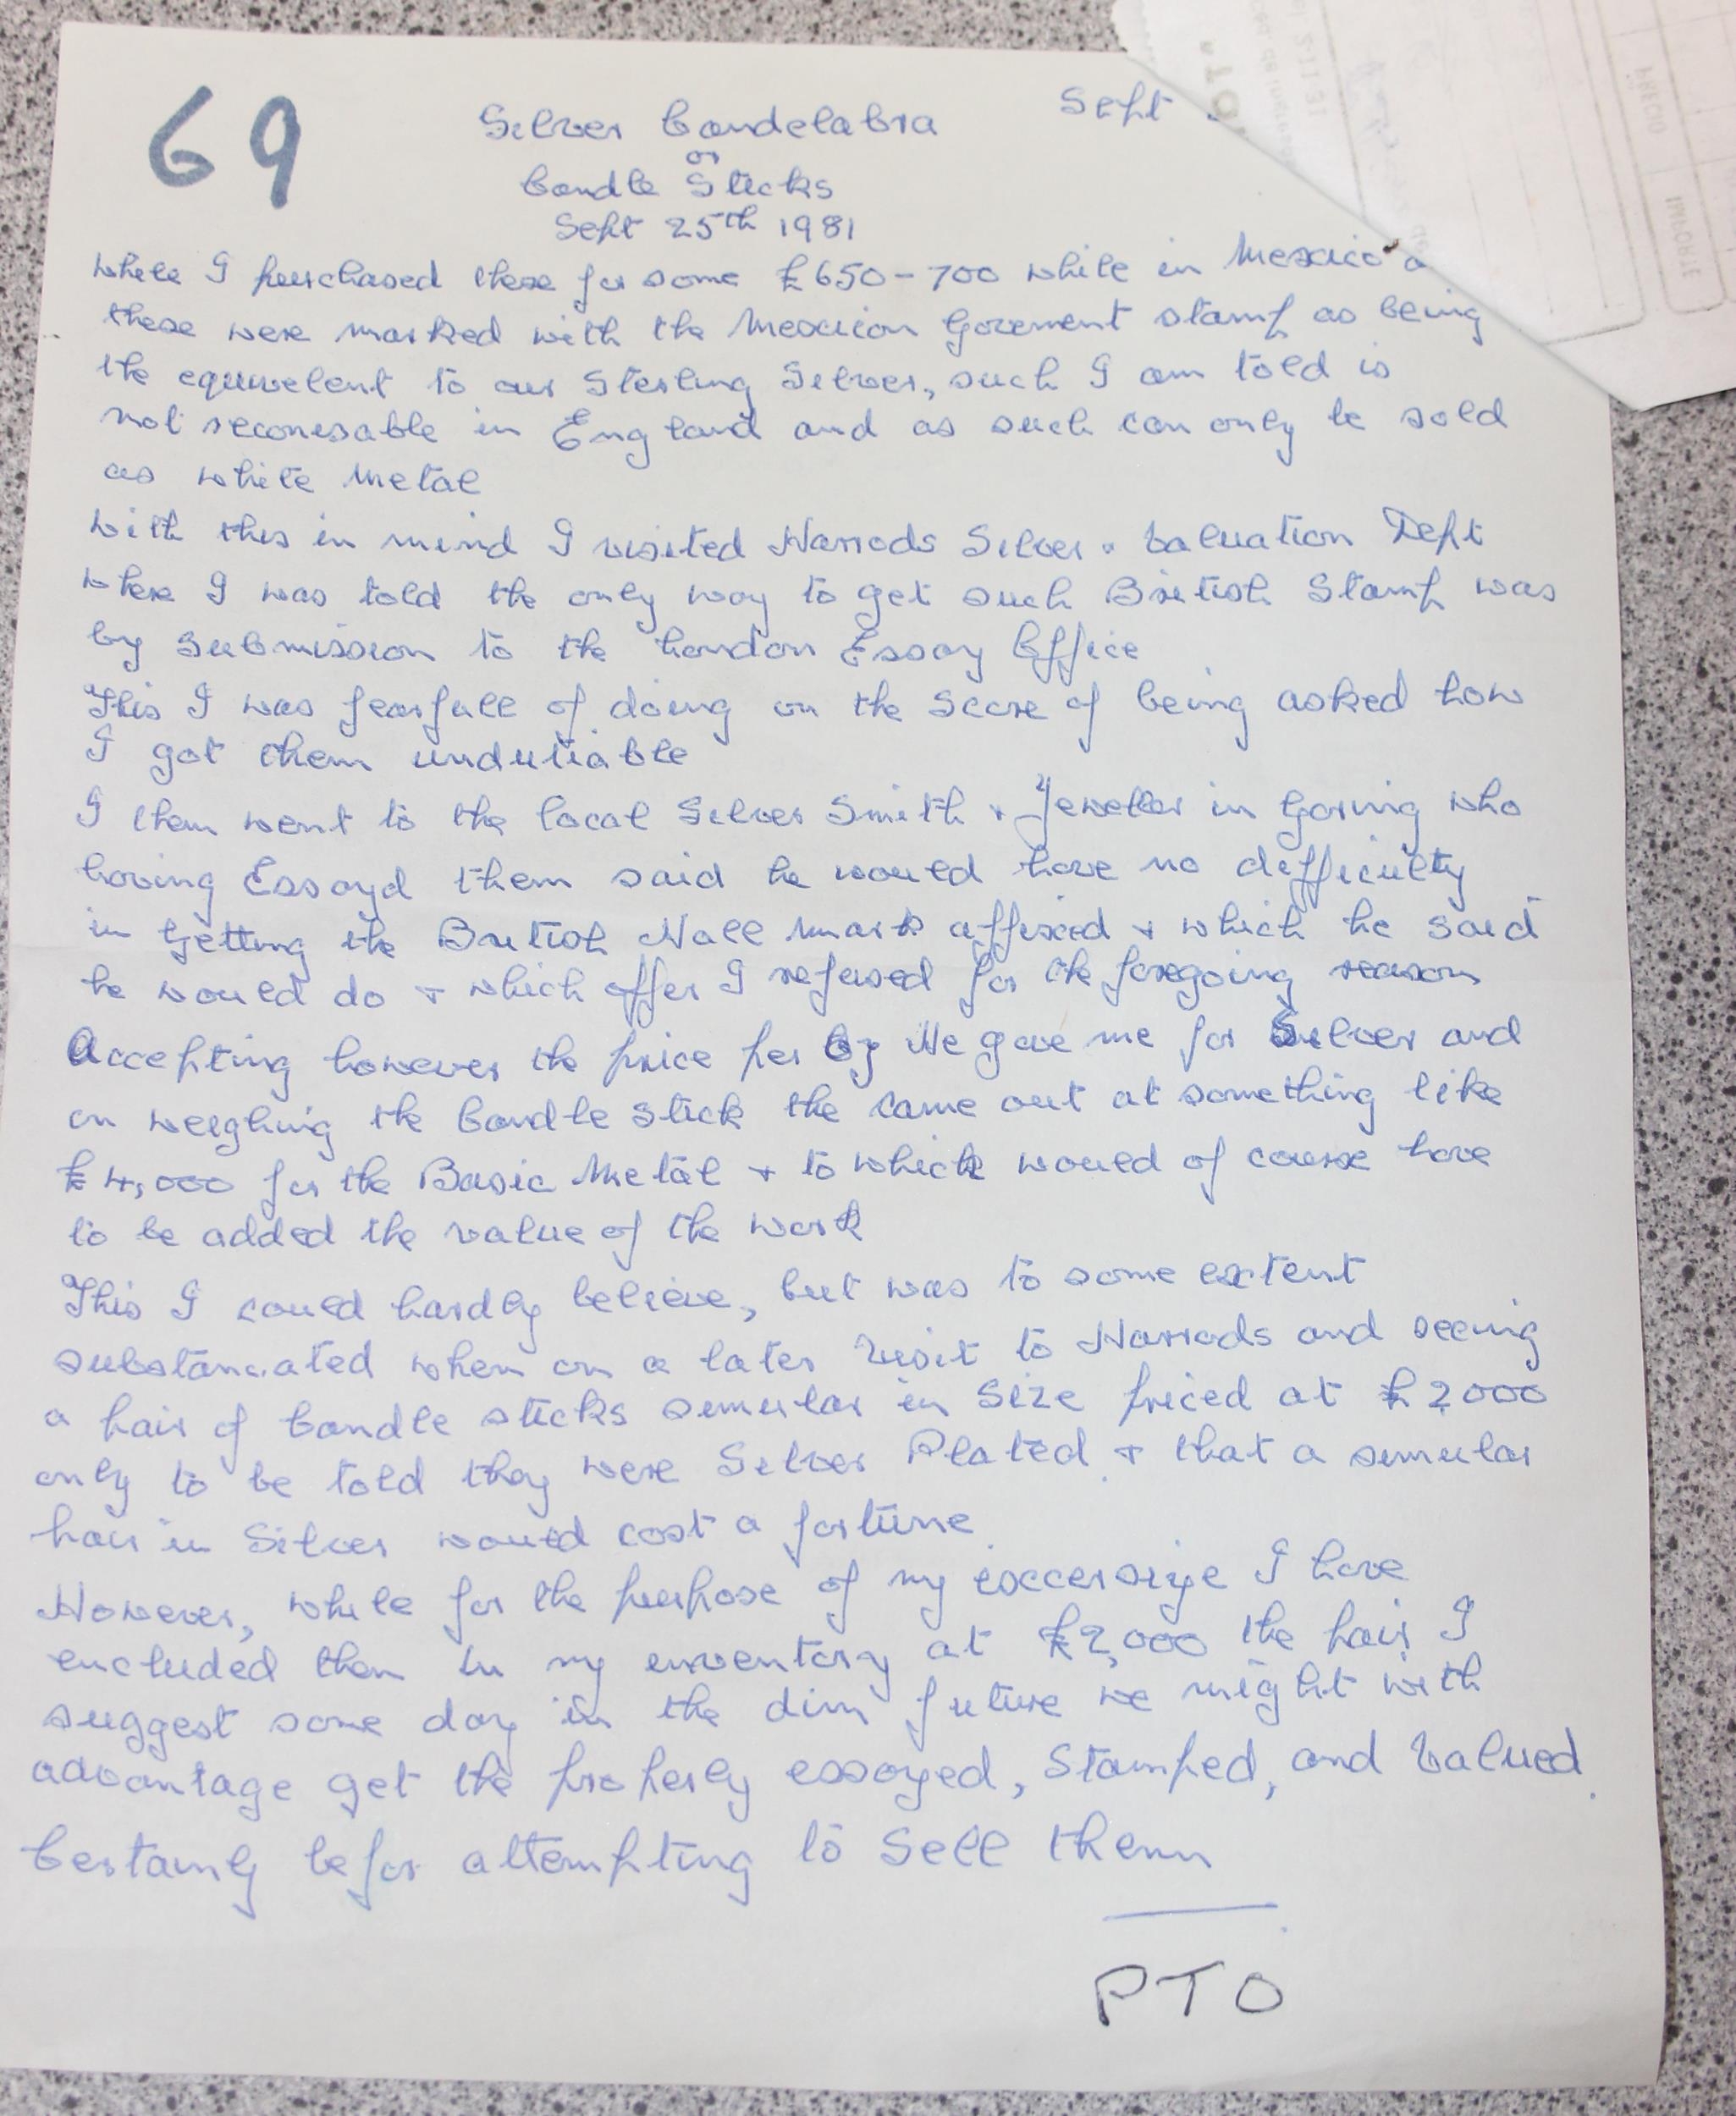 69
Silver Candelabra
Sept
or
Candle Sticks
Sept 25th 1981
While I purchased these for some £650-700 while in Mexico a
these were marked with the Mexicion Goverment stamp as being
the equivelent to our Sterling Silver, such I am told is
not reconisable in England and as such can only be sold
as white Metal
With this in mind I visited Harrods Silver + Valuation Dept
where I was told the only way to get such British Stamp was
by submission to the London Essay Office
This I was fearfull of doing on the score of being asked how
I got them undutiable
I then went to the local Silver Smith + Jeweller in Goring who
having Essayd them said he would have no difficulty
in getting the British Hall mark affixed + which he said
he would do + which offer I refused for the foregoing reason
Accepting however the price per Oz He gave me for Silver and
on weighing the Candle stick the came out at something like
£4,000 for the Basic Metal + to which would of course have
to be added the value of the work
This I could hardly believe, but was to some extent
substanciated when on a later visit to Harrods and seeing
a pair of Candle sticks simular in Size priced at £2000
only to be told they were Silver Plated + that a simular
pair in Silver would cost a fortune
However, while for the purpose of my exccersize I have
encluded them in my enventory at £2,000 the pair I
suggest some day in the dim future we might with
advantage get the properly essayed, Stamped, and Valued.
Certainly befor attempting to Sell them
PTO
PRECIO
IMPORTE